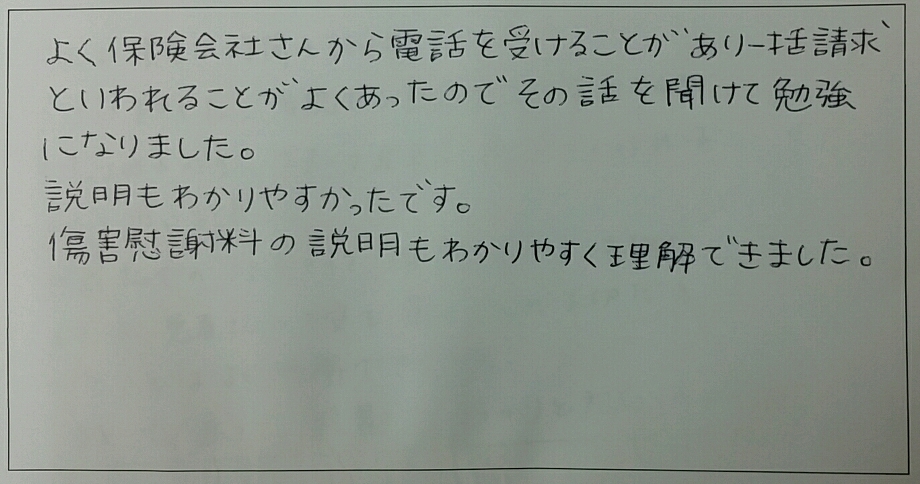 よく保険会社さんから電話を受けることがあり一括請求
といわれることがよくあったのでその話を聞けて勉強
になりました。
説明もわかりやすかったです。
傷害慰謝料の説明もわかりやすく理解できました。